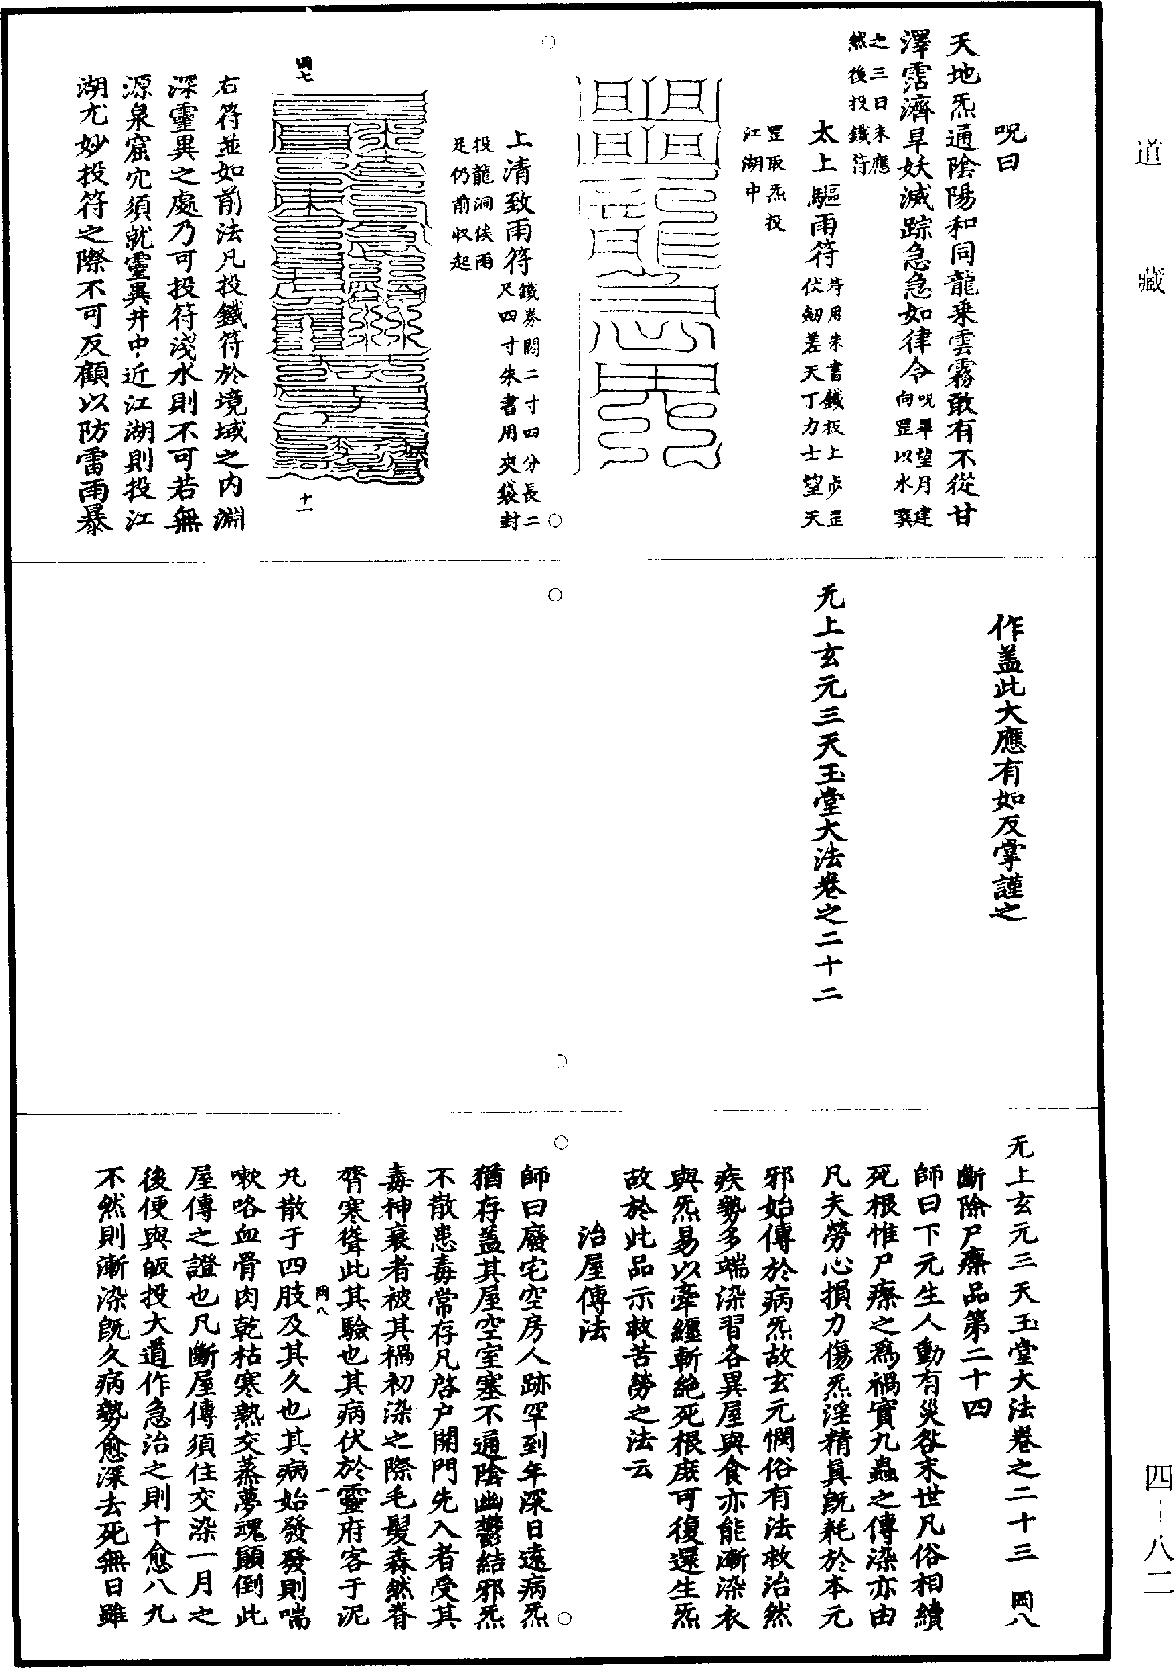 道藏
呪曰
天地炁通陰陽和同龍乘雲霧敢有不從甘
澤霑濟旱妖滅踪急急如律令呪畢望月建
向罡以水噀
之三日未應
然後投鐵符
太上驅雨符符用朱書鐵板上步罡
伏劒差天丁力士望天
罡取炁投
江湖中
上清致雨符鐵券闊二寸四分長二
尺四寸朱書用夾袋封
投龍洞俟雨
足仍前收起
岡七
十一
右符並如前法凡投鐵符於境域之内淵
深靈異之處乃可投符淺水則不可若無
源泉窟穴須就靈異井中近江湖則投江
湖尤妙投符之際不可反顧以防雷雨暴
作蓋此大應有如反掌謹之
无上玄元三天玉堂大法卷之二十二
无上玄元三天玉堂大法卷之二十三 岡八
斷除尸瘵品第二十四
師曰下元生人動有災咎末世凡俗相續
死根惟尸瘵之爲禍實九蟲之傳染亦由
凡夫勞心損力傷炁淫精真既耗於本元
邪始傳於病炁故玄元憫俗有法救治然
疾勢多端染習各異屋與食亦能漸染衣
與炁易以牽纏斬絶死根庶可復還生炁
故於此品示救苦勞之法云
治屋傳法
師曰廢宅空房人跡罕到年深日遠病炁
猶存蓋其屋空室塞不通陰幽鬱結邪炁
不散患毒常存凡啓户開門先入者受其
毒神衰者被其禍初染之際毛髮森然脊
膂寒聳此其驗也其病伏於靈府客于泥
岡八
一
丸散于四肢及其久也其病始發發則喘
嗽咯血骨肉乾枯寒熱交蒸夢魂顛倒此
屋傳之證也凡斷屋傳須住交染一月之
後便與皈投大道作急治之則十愈八九
不然則漸染既久病勢愈深去死無日雖
四-八二